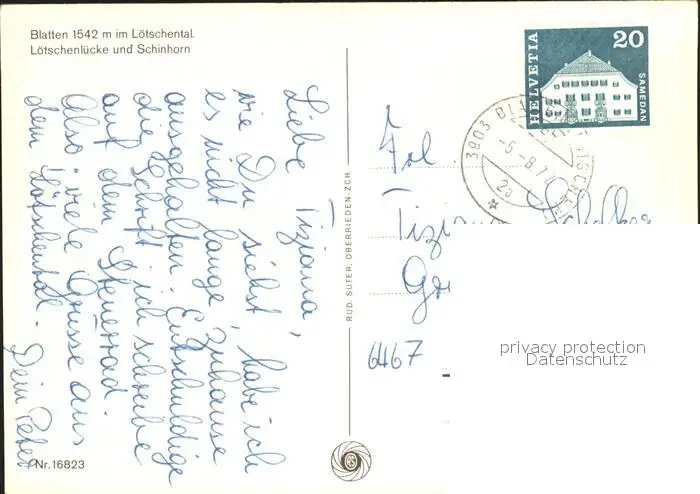 Blatten 1542 m im Lötschental
Lötschenlücke und Schinhorn
Liebe Tiziana,
wie Du siehst, habe ich
es nicht lange zuhause
ausgehalten. Entschuldige
die Schrift, ich schreibe
auf dem
Also: viele Grüsse aus
dem Lötschental.
Dein Peter
Nr.16823
RUD. SUTER, OBERRIEDEN-ZCH.
HELVETIA
20
SAMEDAN
3903 BLA
-5.-8.7
Tizi
6467
privacy protection
Datenschutz